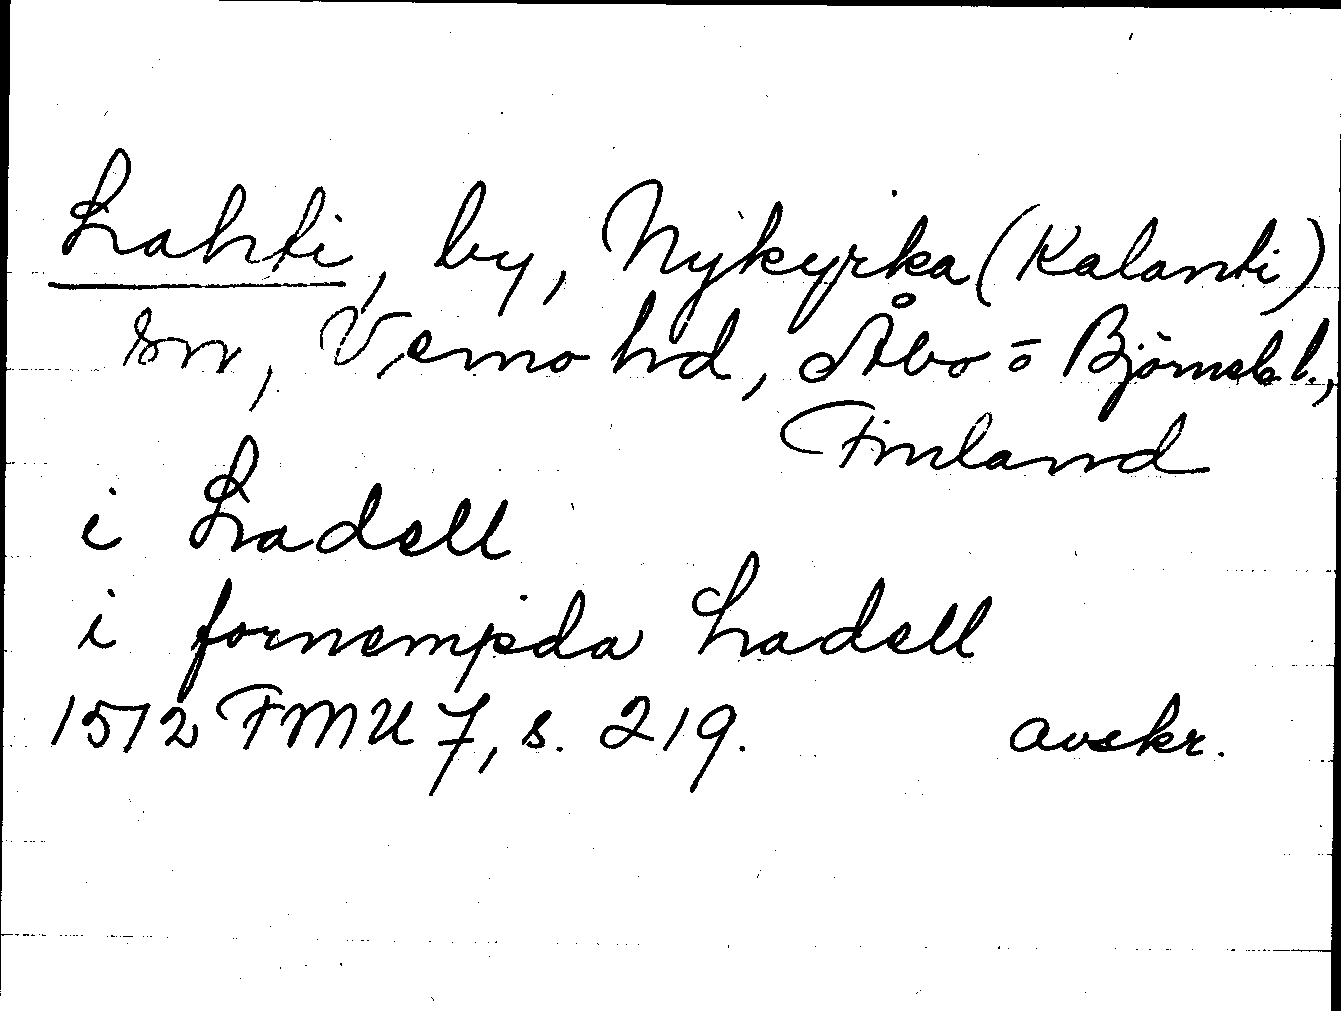 Lahti, by, Nykyrka (Kalanti)
sn, Vemo hd, Åbo o Björneb. l.,
Finland
i Ladell
i fornempda Ladell
1512 FMU 7, s. 219. avskr.